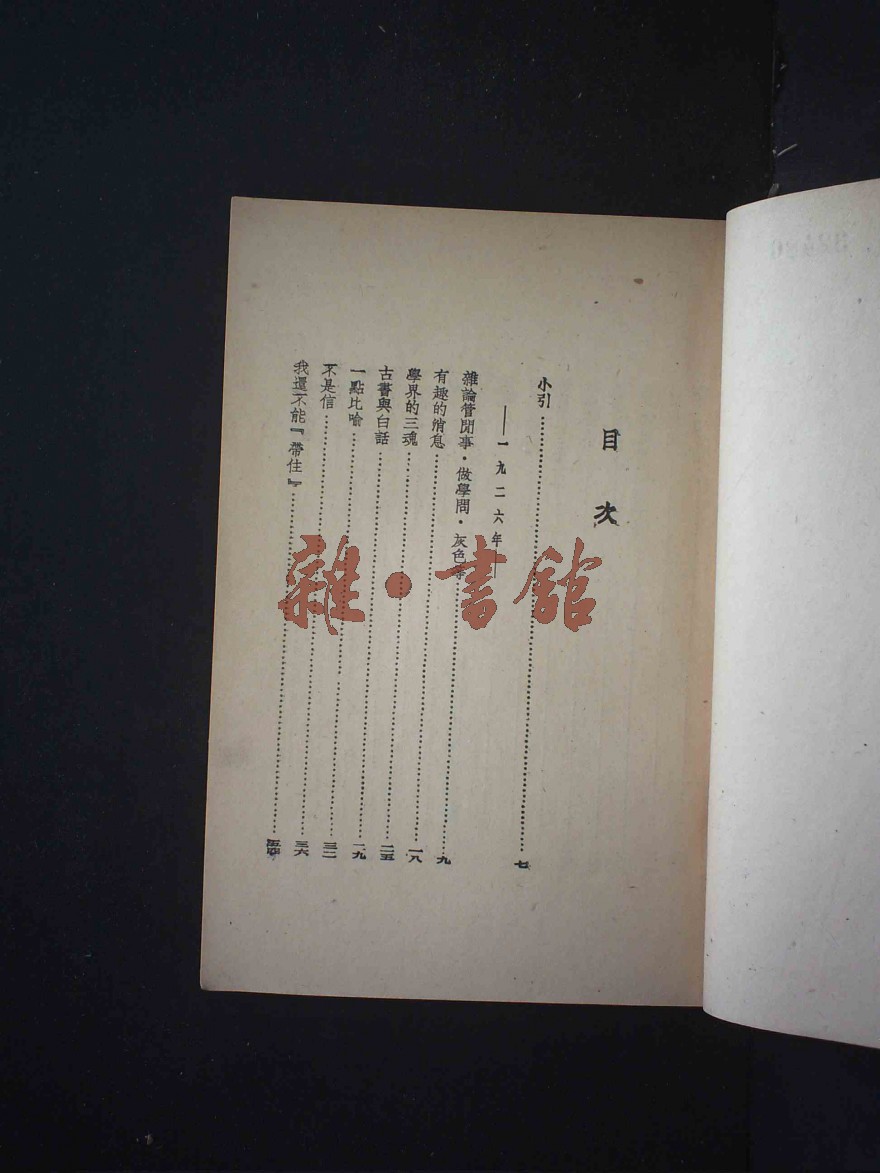 目次
小引……七
——一九二六年——
雜論管閒事・做學問・灰色等……九
有趣的消息……一八
學界的三魂……二五
古書與白話……一九
一點比喻……三二
不是信……三六
我還不能『帶住』……五四
雜・書館